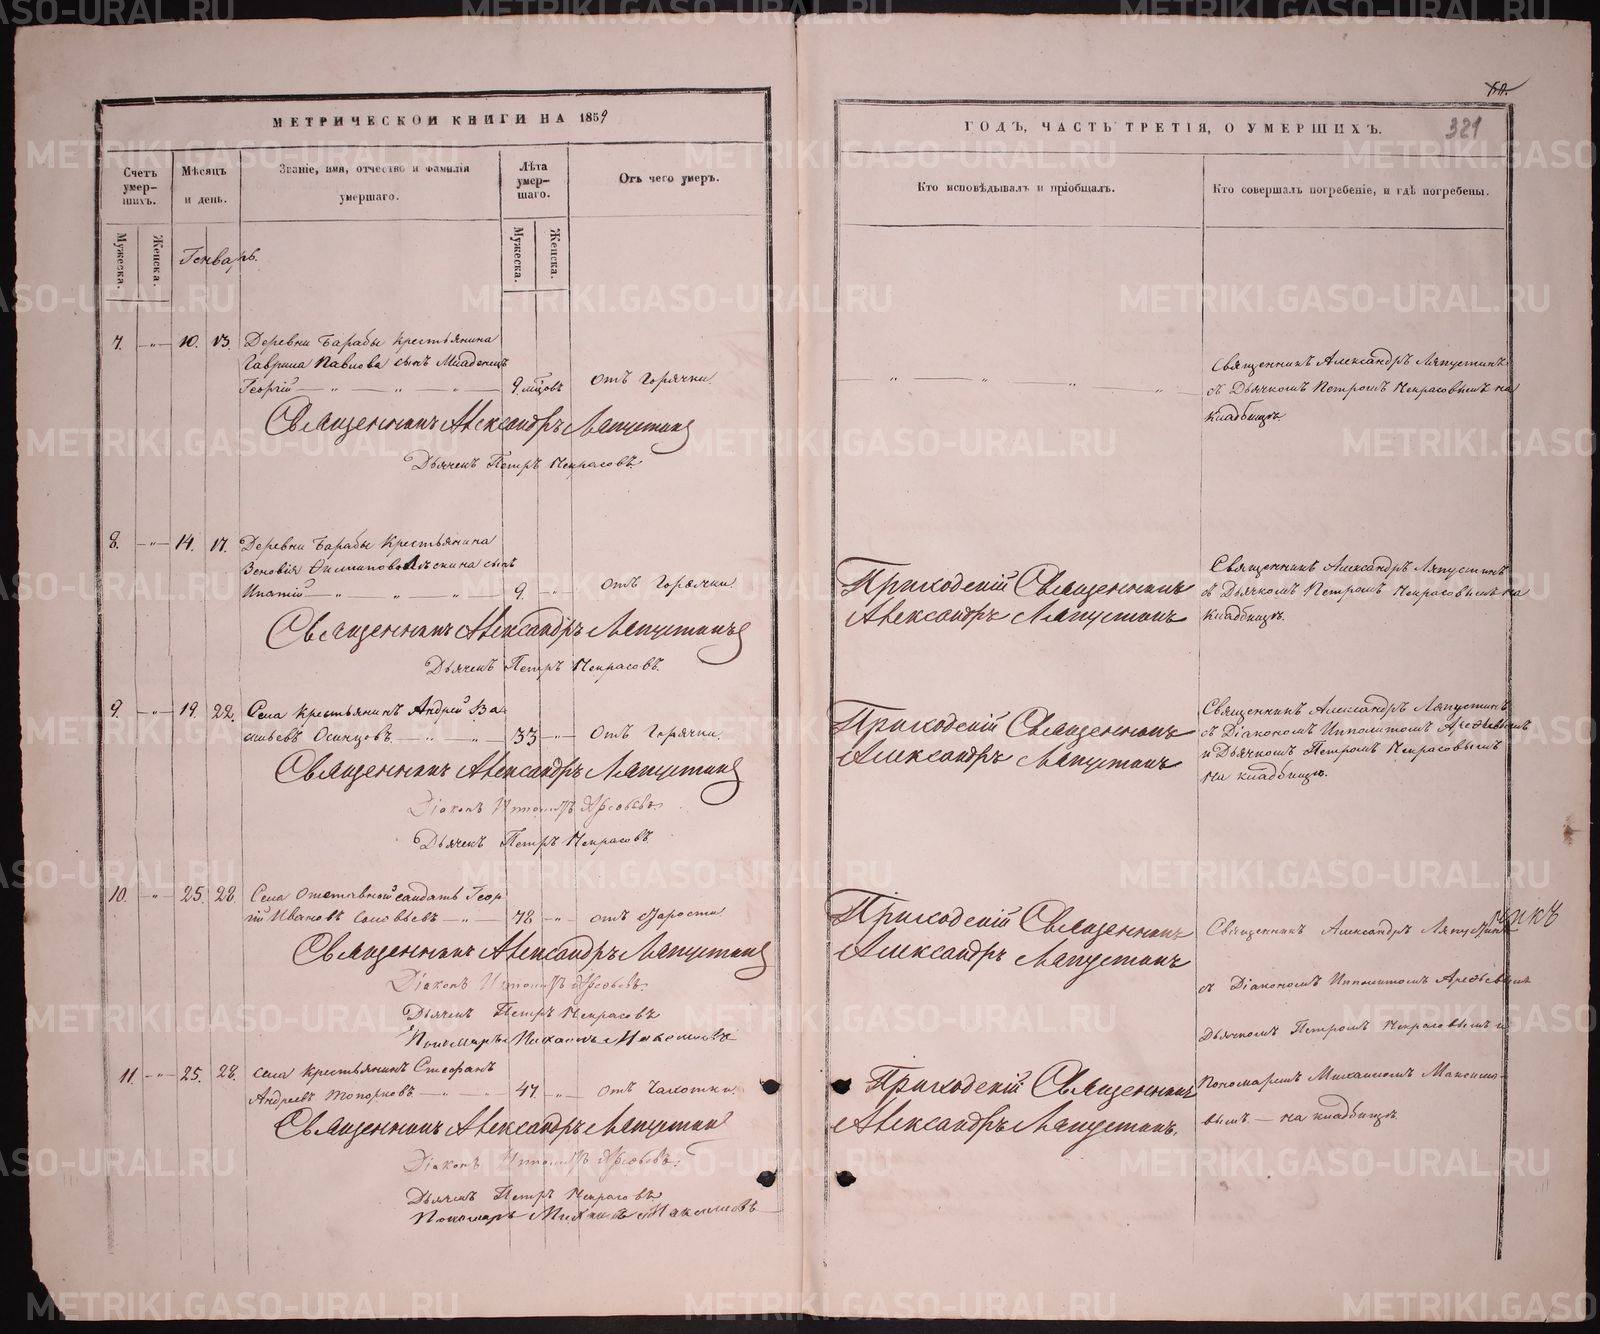 МЕТРИЧЕСКОЙ КНИГИ НА 1859
Счетъ умер- шихъ.
Мѣсяцъ и день.
Званіе, имя, отчество и фамилія умершаго.
Лѣта умер- шаго.
Отъ чего умеръ.
Мужеска.
Женска.
Мужеска.
Женска.
Генварь.
7. — „ — 10. 13. Деревни Барабы крестьянина
Гаврила Павлова сынъ Младенецъ
Георгій — „ — „ — „ — 9 мцовъ отъ Горячки.
Священникъ Александръ Ляпустинъ
Дьячекъ Петръ Некрасовъ.
8. — „ — 14. 17. Деревни Барабы Крестьянина
Зеновія Филиппова сынъ
Ипатій — „ — „ — „ — 9. — „ — отъ Горячки.
Священникъ Александръ Ляпустинъ
Дьячекъ Петръ Некрасовъ.
9. — „ — 19. 22. Села Крестьянинъ Андрей Ва-
сильевъ Осинцовъ. — „ — „ 33 — „ — отъ Горячки.
Священникъ Александръ Ляпустинъ
Діаконъ Ипполитъ Арефьевъ.
Дьячекъ Петръ Некрасовъ.
10. — „ — 25. 28. Села Отставной солдатъ Геор-
гій Ивановъ Соловьевъ — „ — 78 — „ — отъ старости
Священникъ Александръ Ляпустинъ
Діаконъ Ипполитъ Арефьевъ.
Дьячекъ Петръ Некрасовъ
Пономарь Михаилъ Максимовъ
11. — „ — 25. 28. Села крестьянинъ Стефанъ
Андреевъ Топорковъ — „ — „ — 47. — „ — отъ Чахотки.
Священникъ Александръ Ляпустинъ
Діаконъ Ипполитъ Арефьевъ.
Дьячекъ Петръ Некрасовъ
Пономарь Михаилъ Максимовъ
ГОДЪ, ЧАСТЬ ТРЕТІЯ, О УМЕРШИХЪ.
321
Кто исповѣдывалъ и пріобщалъ.
Кто совершалъ погребеніе, и гдѣ погребены.
Священникъ Александръ Ляпустинъ
съ Дьячкомъ Петромъ Некрасовымъ на
кладбищѣ.
Приходскій Священникъ
Александръ Ляпустинъ
Священникъ Александръ Ляпустинъ
съ Дьячкомъ Петромъ Некрасовымъ на
кладбищѣ.
Приходскій Священникъ
Александръ Ляпустинъ
Священникъ Александръ Ляпустинъ
съ Діакономъ Ипполитомъ Арефьевымъ
и Дьячкомъ Петромъ Некрасовымъ
на кладбищѣ.
Приходскій Священникъ
Александръ Ляпустинъ
Священникъ Александръ Ляпустинъ
съ Діакономъ Ипполитомъ Арефьевымъ
Дьячкомъ Петромъ Некрасовымъ и
Приходскій Священникъ
Александръ Ляпустинъ.
Пономаремъ Михаиломъ Максимо-
вымъ — на кладбищѣ.
METRIKI.GASO-URAL.RU